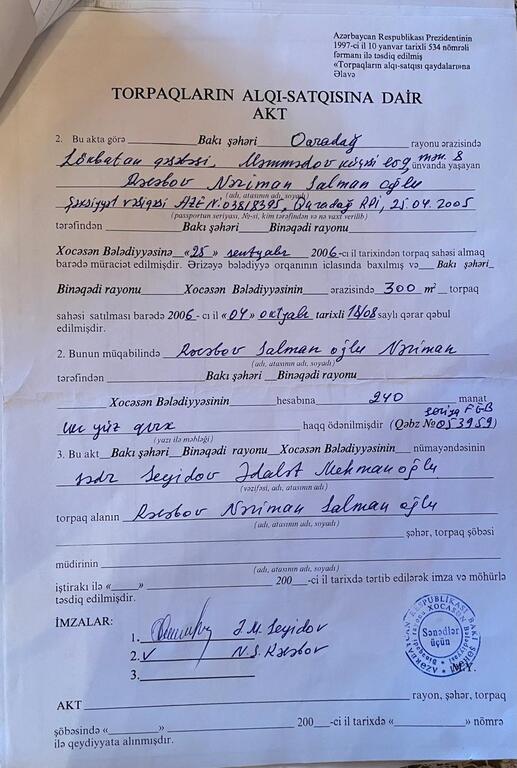 Azərbaycan Respublikası Prezidentinin
1997-ci il 10 yanvar tarixli 534 nömrəli
fərmanı ilə təsdiq edilmiş
«Torpaqların alqı-satqısı qaydaları»na
Əlavə
TORPAQLARIN ALQI-SATQISINA DAİR
AKT
2. Bu akta görə Bakı şəhəri Qaradağ rayonu ərazisində
Lökbatan qəsəbəsi, Məmmədov küçəsi ünvanda yaşayan
Rəcəbov Nəriman Salman oğlu
(adı, atasının adı, soyadı)
Şəxsiyyət vəsiqəsi AZE №03818395, Qaradağ RPİ, 25.04.2005
(passportun seriyası, №-si, kim tərəfindən və nə vaxt verilib)
tərəfindən Bakı şəhəri Binəqədi rayonu
Xocəsən Bələdiyyəsinə «25» sentyabr 2006-cı il tarixindən torpaq sahəsi almaq
barədə müraciət edilmişdir. Ərizəyə bələdiyyə orqanının iclasında baxılmış və Bakı şəhəri
Binəqədi rayonu Xocəsən Bələdiyyəsinin ərazisində 300 m² torpaq
sahəsi satılması barədə 2006-cı il «04» oktyabr tarixli 18/08 saylı qərar qəbul
edilmişdir.
2. Bunun müqabilində Rəcəbov Salman oğlu Nəriman
(adı, atasının adı, soyadı)
tərəfindən Bakı şəhəri Binəqədi rayonu
Xocəsən Bələdiyyəsinin hesabına 240 manat
iki yüz qırx haqq ödənilmişdir (Qəbz № seriya 053959)
(yazı ilə məbləği)
3. Bu akt Bakı şəhəri Binəqədi rayonu Xocəsən Bələdiyyəsinin nümayəndəsinin
sədr Seyidov Ədalət Mehman oğlu
(vəzifəsi, adı, atasının adı)
torpaq alanın Rəcəbov Nəriman Salman oğlu
(adı, atasının adı, soyadı)
şəhər, torpaq şöbəsi
müdirinin
(adı, atasının adı, soyadı)
iştirakı ilə «____» 200__-ci il tarixdə tərtib edilərək imza və möhürlə
təsdiq edilmişdir.
İMZALAR:
1. Ə.M.Seyidov
2. V N.S.Rəcəbov
3.
AZƏRBAYCAN RESPUBLİKASI BAKI ŞƏHƏRİ
Sənədlər
üçün
M.Y.
AKT rayon, şəhər, torpaq
şöbəsində «____» 200__-ci il tarixdə «____» nömrə
ilə qeydiyyata alınmışdır.